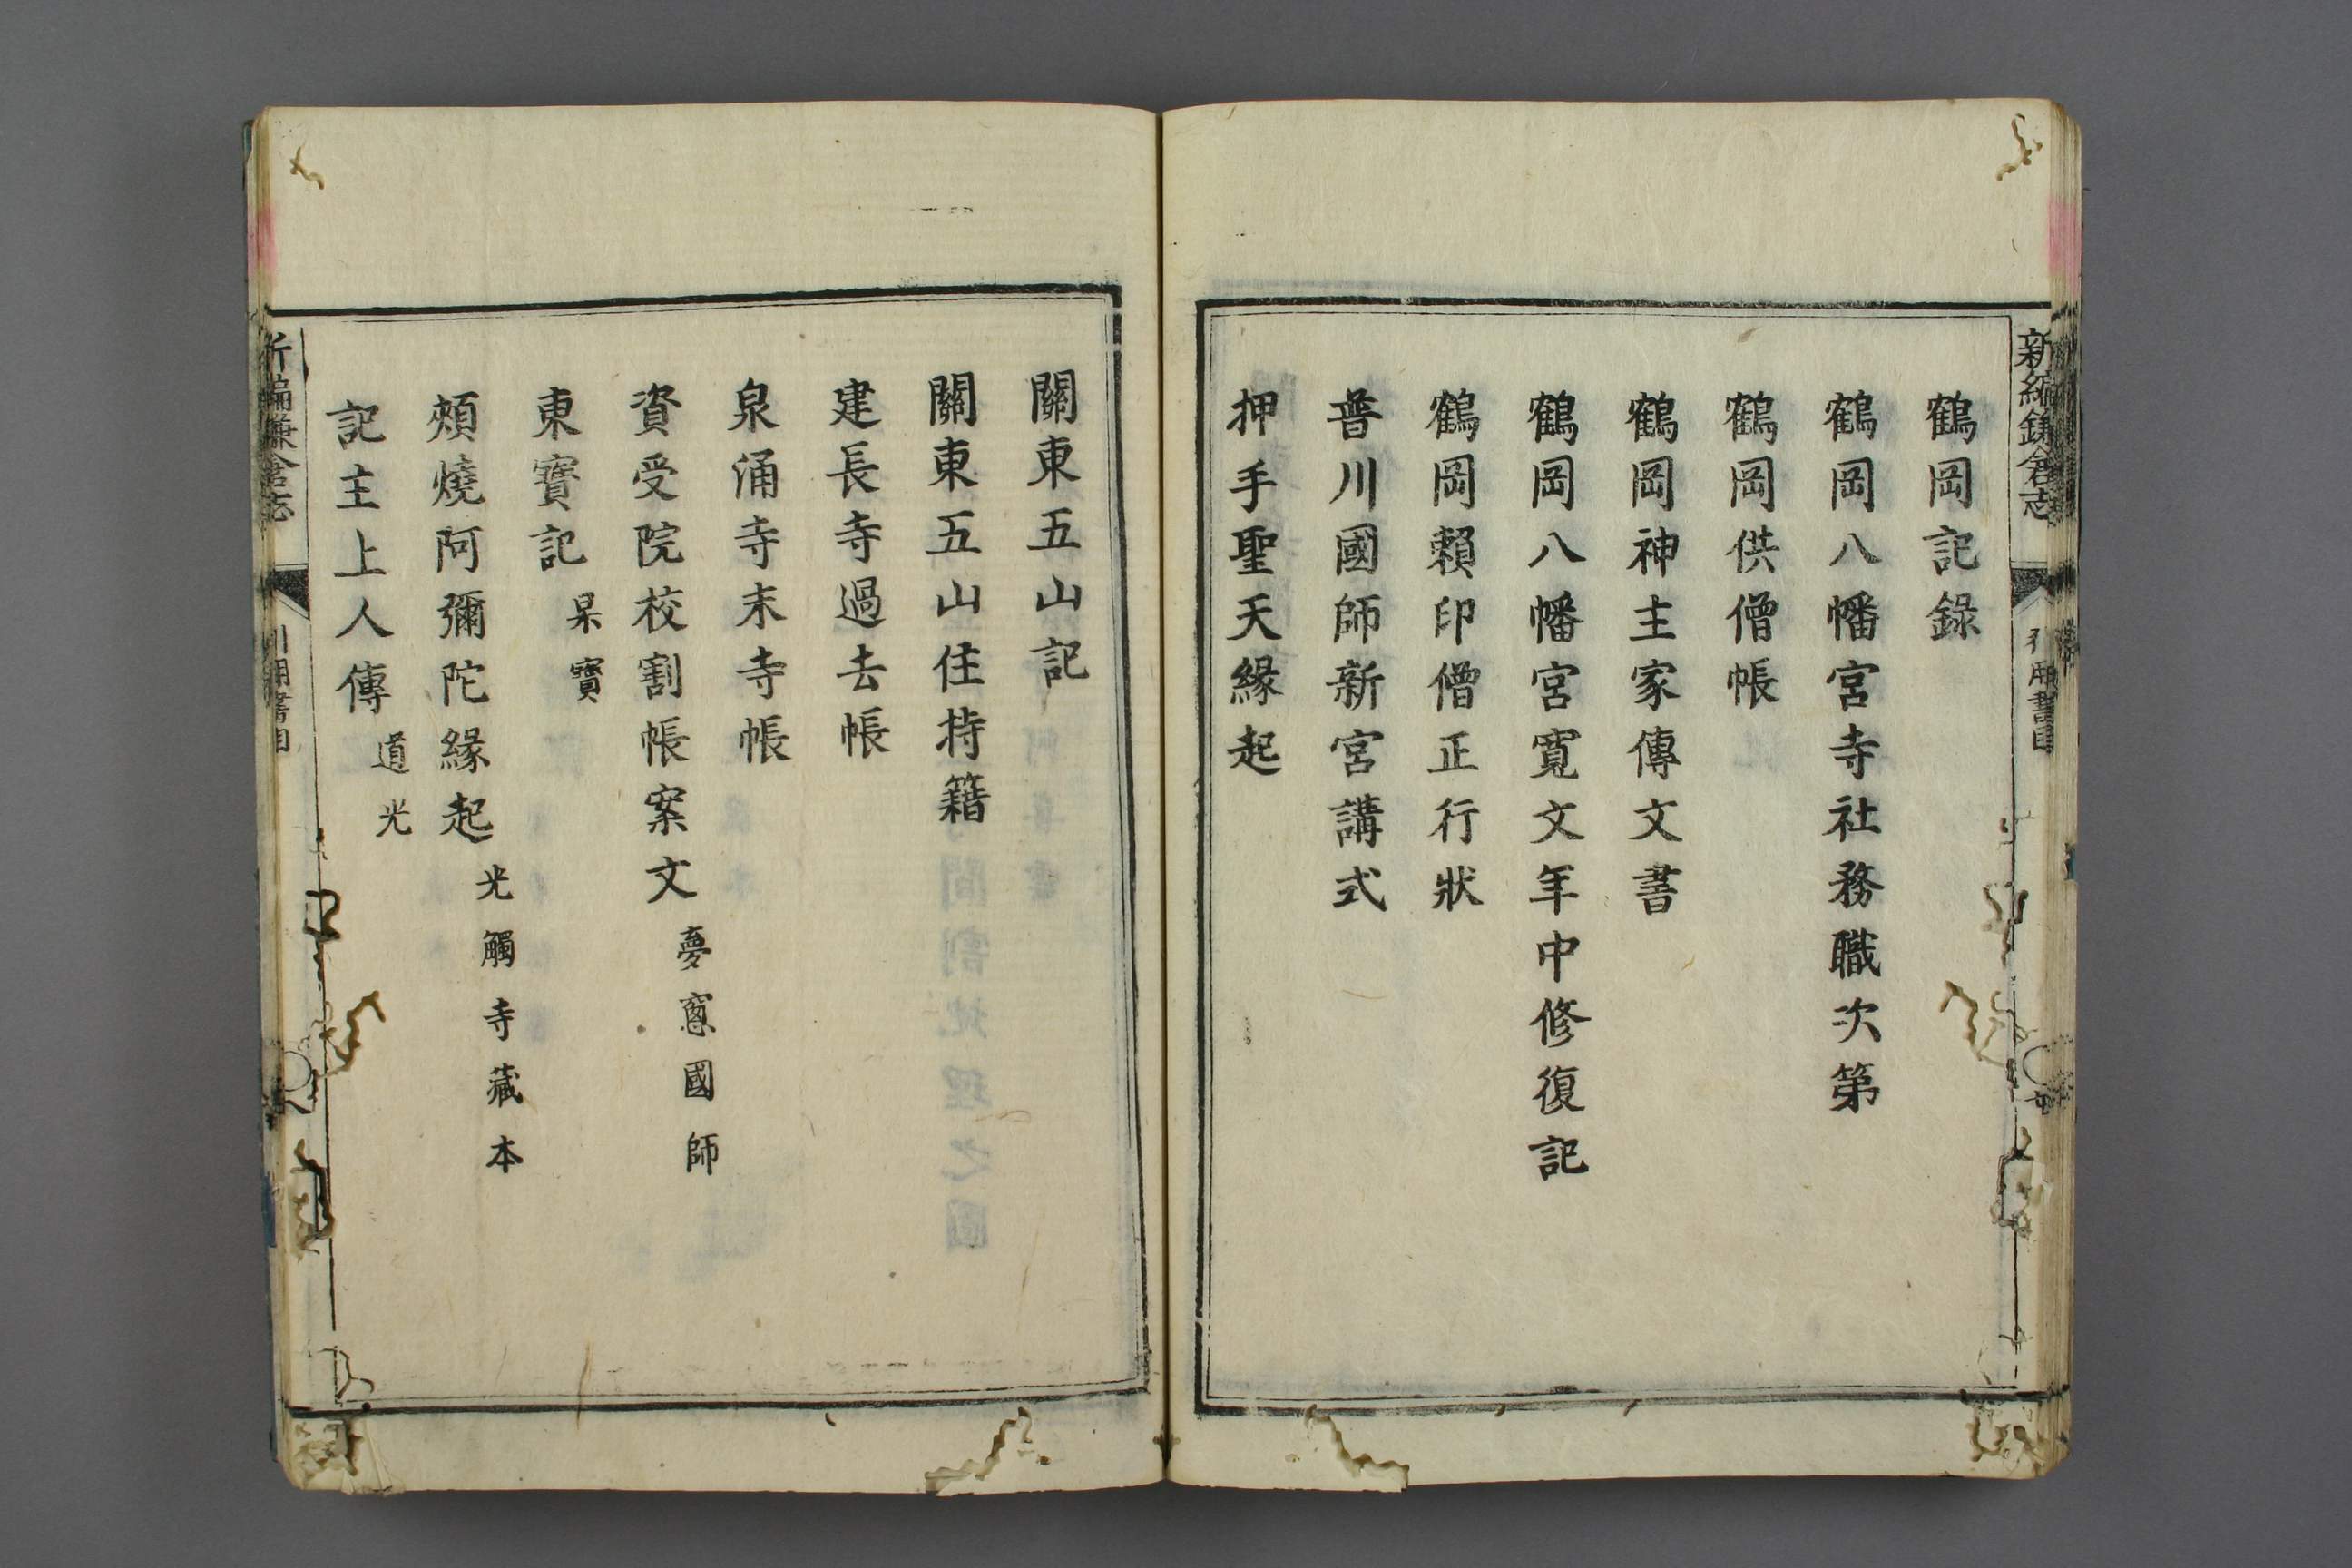 新編鎌倉志
引用書目
鶴岡記錄
鶴岡八幡宮寺社務職次第
鶴岡供僧帳
鶴岡神主家傳文書
鶴岡八幡宮寬文年中修復記
鶴岡賴印僧正行狀
普川國師新宮講式
押手聖天緣起
關東五山記
關東五山住持籍
建長寺過去帳
泉涌寺末寺帳
資受院校割帳案文 夢窻國師
東寶記 杲寶
頰燒阿彌陀緣起 光觸寺藏本
記主上人傳 道光
新編鎌倉志
引用書目